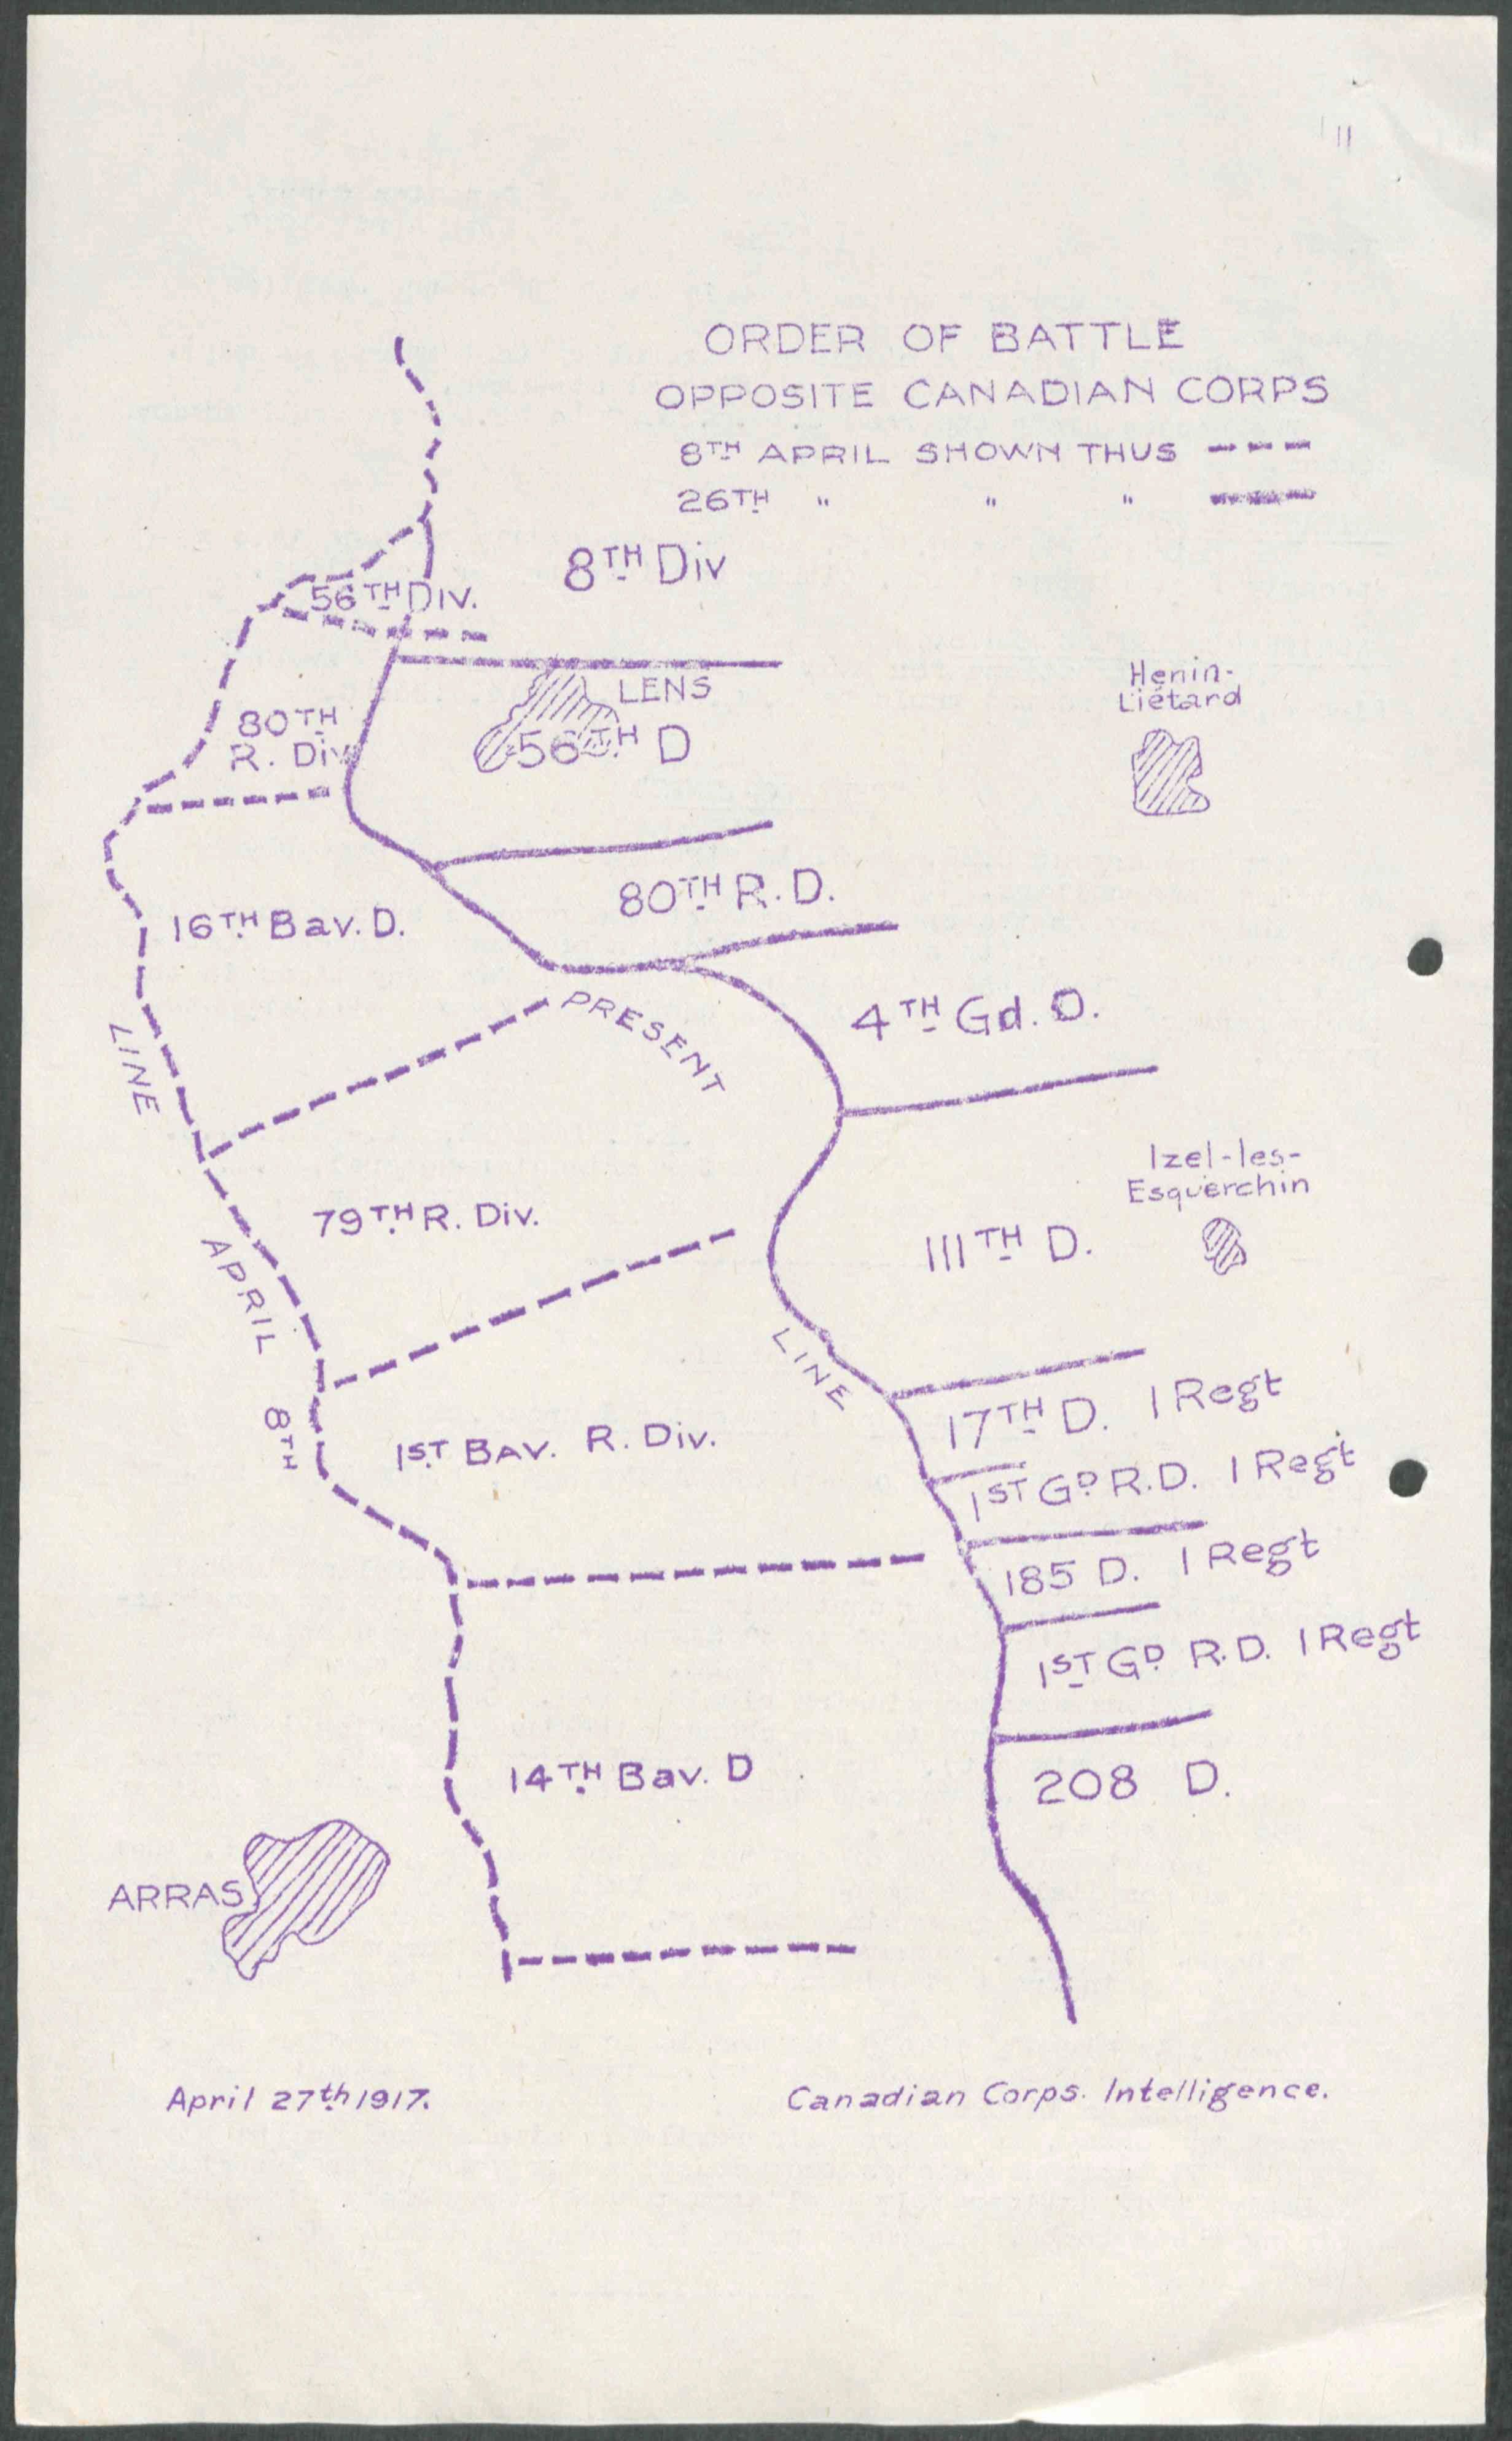 11
ORDER OF BATTLE
OPPOSITE CANADIAN CORPS
8TH APRIL SHOWN THUS
26TH " " "
8TH Div
56TH DIV.
LENS
Henin-
Liétard
80TH
R. Div
56TH D
80TH R. D.
16TH Bav. D.
4TH Gd. D.
PRESENT
LINE
LINE
APRIL
8TH
Izel-les-
Esquerchin
79TH R. Div.
111TH D.
17TH D. 1 Regt
1ST BAV. R. Div.
1ST GD R.D. 1 Regt
185 D. 1 Regt
1ST GD R.D. 1 Regt
14TH Bav. D
208 D.
ARRAS
April 27th 1917.
Canadian Corps. Intelligence.